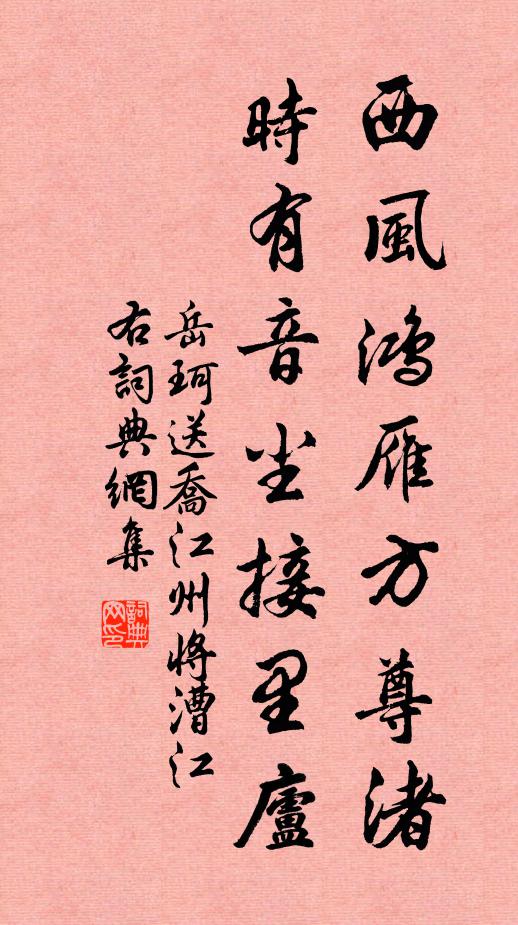 西風鴻雁方尊渚
時有音尘接里廬
岳珂送喬江州將漕江
右詞典網集
詞典网印